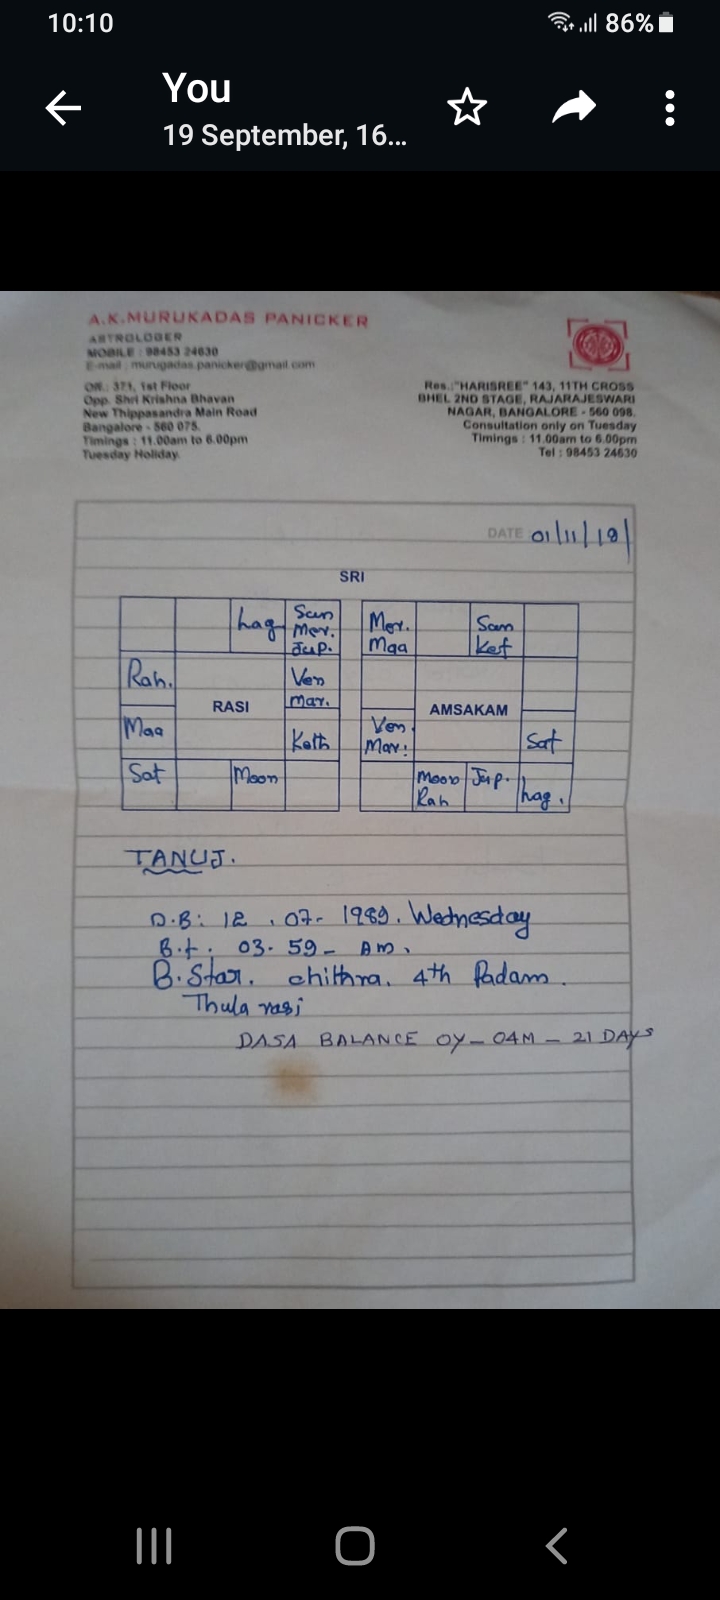 10:10 86%
You
19 September, 16...
A.K.MURUKADAS PANICKER
ASTROLOGER
MOBILE : 98453 24630
E-mail : murugadas.panicker@gmail.com
Off.: 371, 1st Floor
Opp. Shri Krishna Bhavan
New Thippasandra Main Road
Bangalore - 560 075.
Timings : 11.00am to 6.00pm
Tuesday Holiday.
Res.:"HARISREE" 143, 11TH CROSS
BHEL 2ND STAGE, RAJARAJESWARI
NAGAR, BANGALORE - 560 098.
Consultation only on Tuesday
Timings : 11.00am to 6.00pm
Tel : 98453 24630
DATE 01/11/19
SRI
Lag Sun
Mer.
Jup.
Rah. Ven
Mar.
RASI
Maa Keth
Sat Moon
Mer.
Maa
Sun
Ket
AMSAKAM
Ven.
Mar.
Sat
Moon
Rah
Jup.
Lag.
TANUJ.
D.B: 12 .07- 1989. Wednesday
B.t. 03-59- AM.
B.Star. chithra. 4th Padam.
Thula rasi
DASA BALANCE 0Y- 04M - 21 DAYS